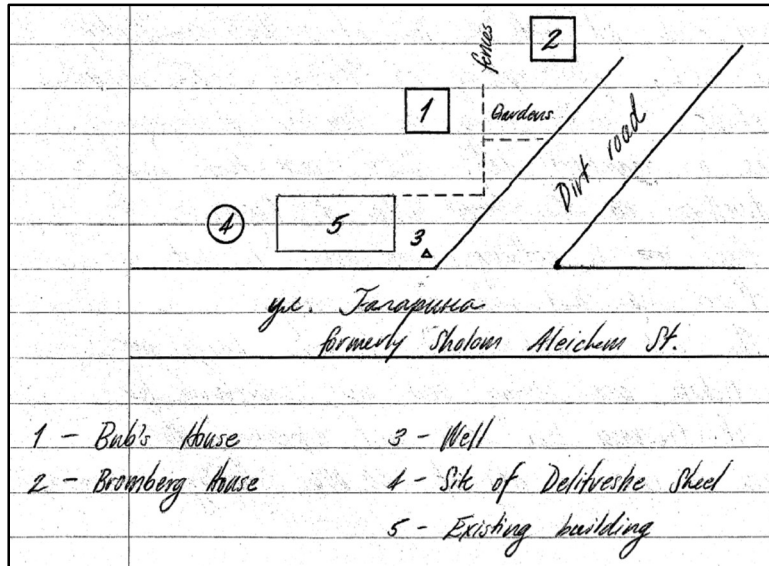 2
fences
1
Gardens
Dirt road
4
5
3
ул. Гагарина
formerly Sholom Aleichem St.
1 - Bub's House
2 - Bromberg House
3 - Well
4 - Site of Delitveshe Sheel
5 - Existing building